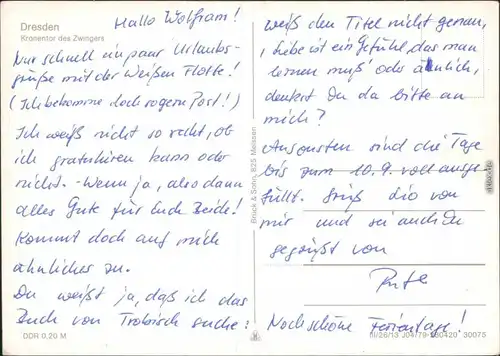 Dresden
Kronentor des Zwingers
Hallo Wolfram!
Nur schnell ein paar Urlaubs-
grüße mit der Weißen Flotte!
(Ich bekomme doch so gern Post!)
Ich weiß nicht so recht, ob
ich gratulieren kann oder
nicht. - Wenn ja, also dann
alles Gute für Euch Beide!
Kommt doch auf mich
ähnliches zu.
Du weißt ja, daß ich das
Buch von Trobisch suche:
DDR 0,20 M
Bruck & Sohn, 825 Meissen
weiß den Titel nicht genau,
"Liebe ist ein Gefühl, das man
lernen muß" oder ähnlich,
denkst Du da bitte an
mich?
Ansonsten sind die Tage
bis zum 10.9. voll ausge-
füllt. Grüß die von
mir und sei auch Du
gegrüßt von
Rute
Noch schöne Ferientage!
III/26/13 J04/79 300420 30075